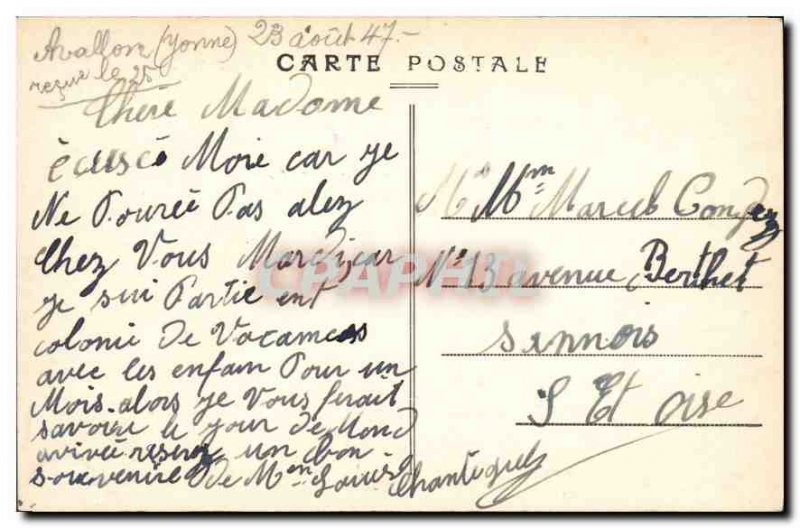 Avallon (Yonne) 23 août 47.-
reçue le 25
CARTE POSTALE
Chère Madame
écuscé Moie car ye
Ne Pourée Pas alez
Chez Vous Mardi, car
ye sui Partie ent
colonie de Vacances
avec les enfan Pour un
Mois. alors ye Vous ferait
savoire le your de Mond
arivée reserez un bon
souvenire de Mem Louise
Chantequel
Mr Mme Marcel
N° 13 avenue Berthet
Sannois
S Et Oise
CPAPHIL